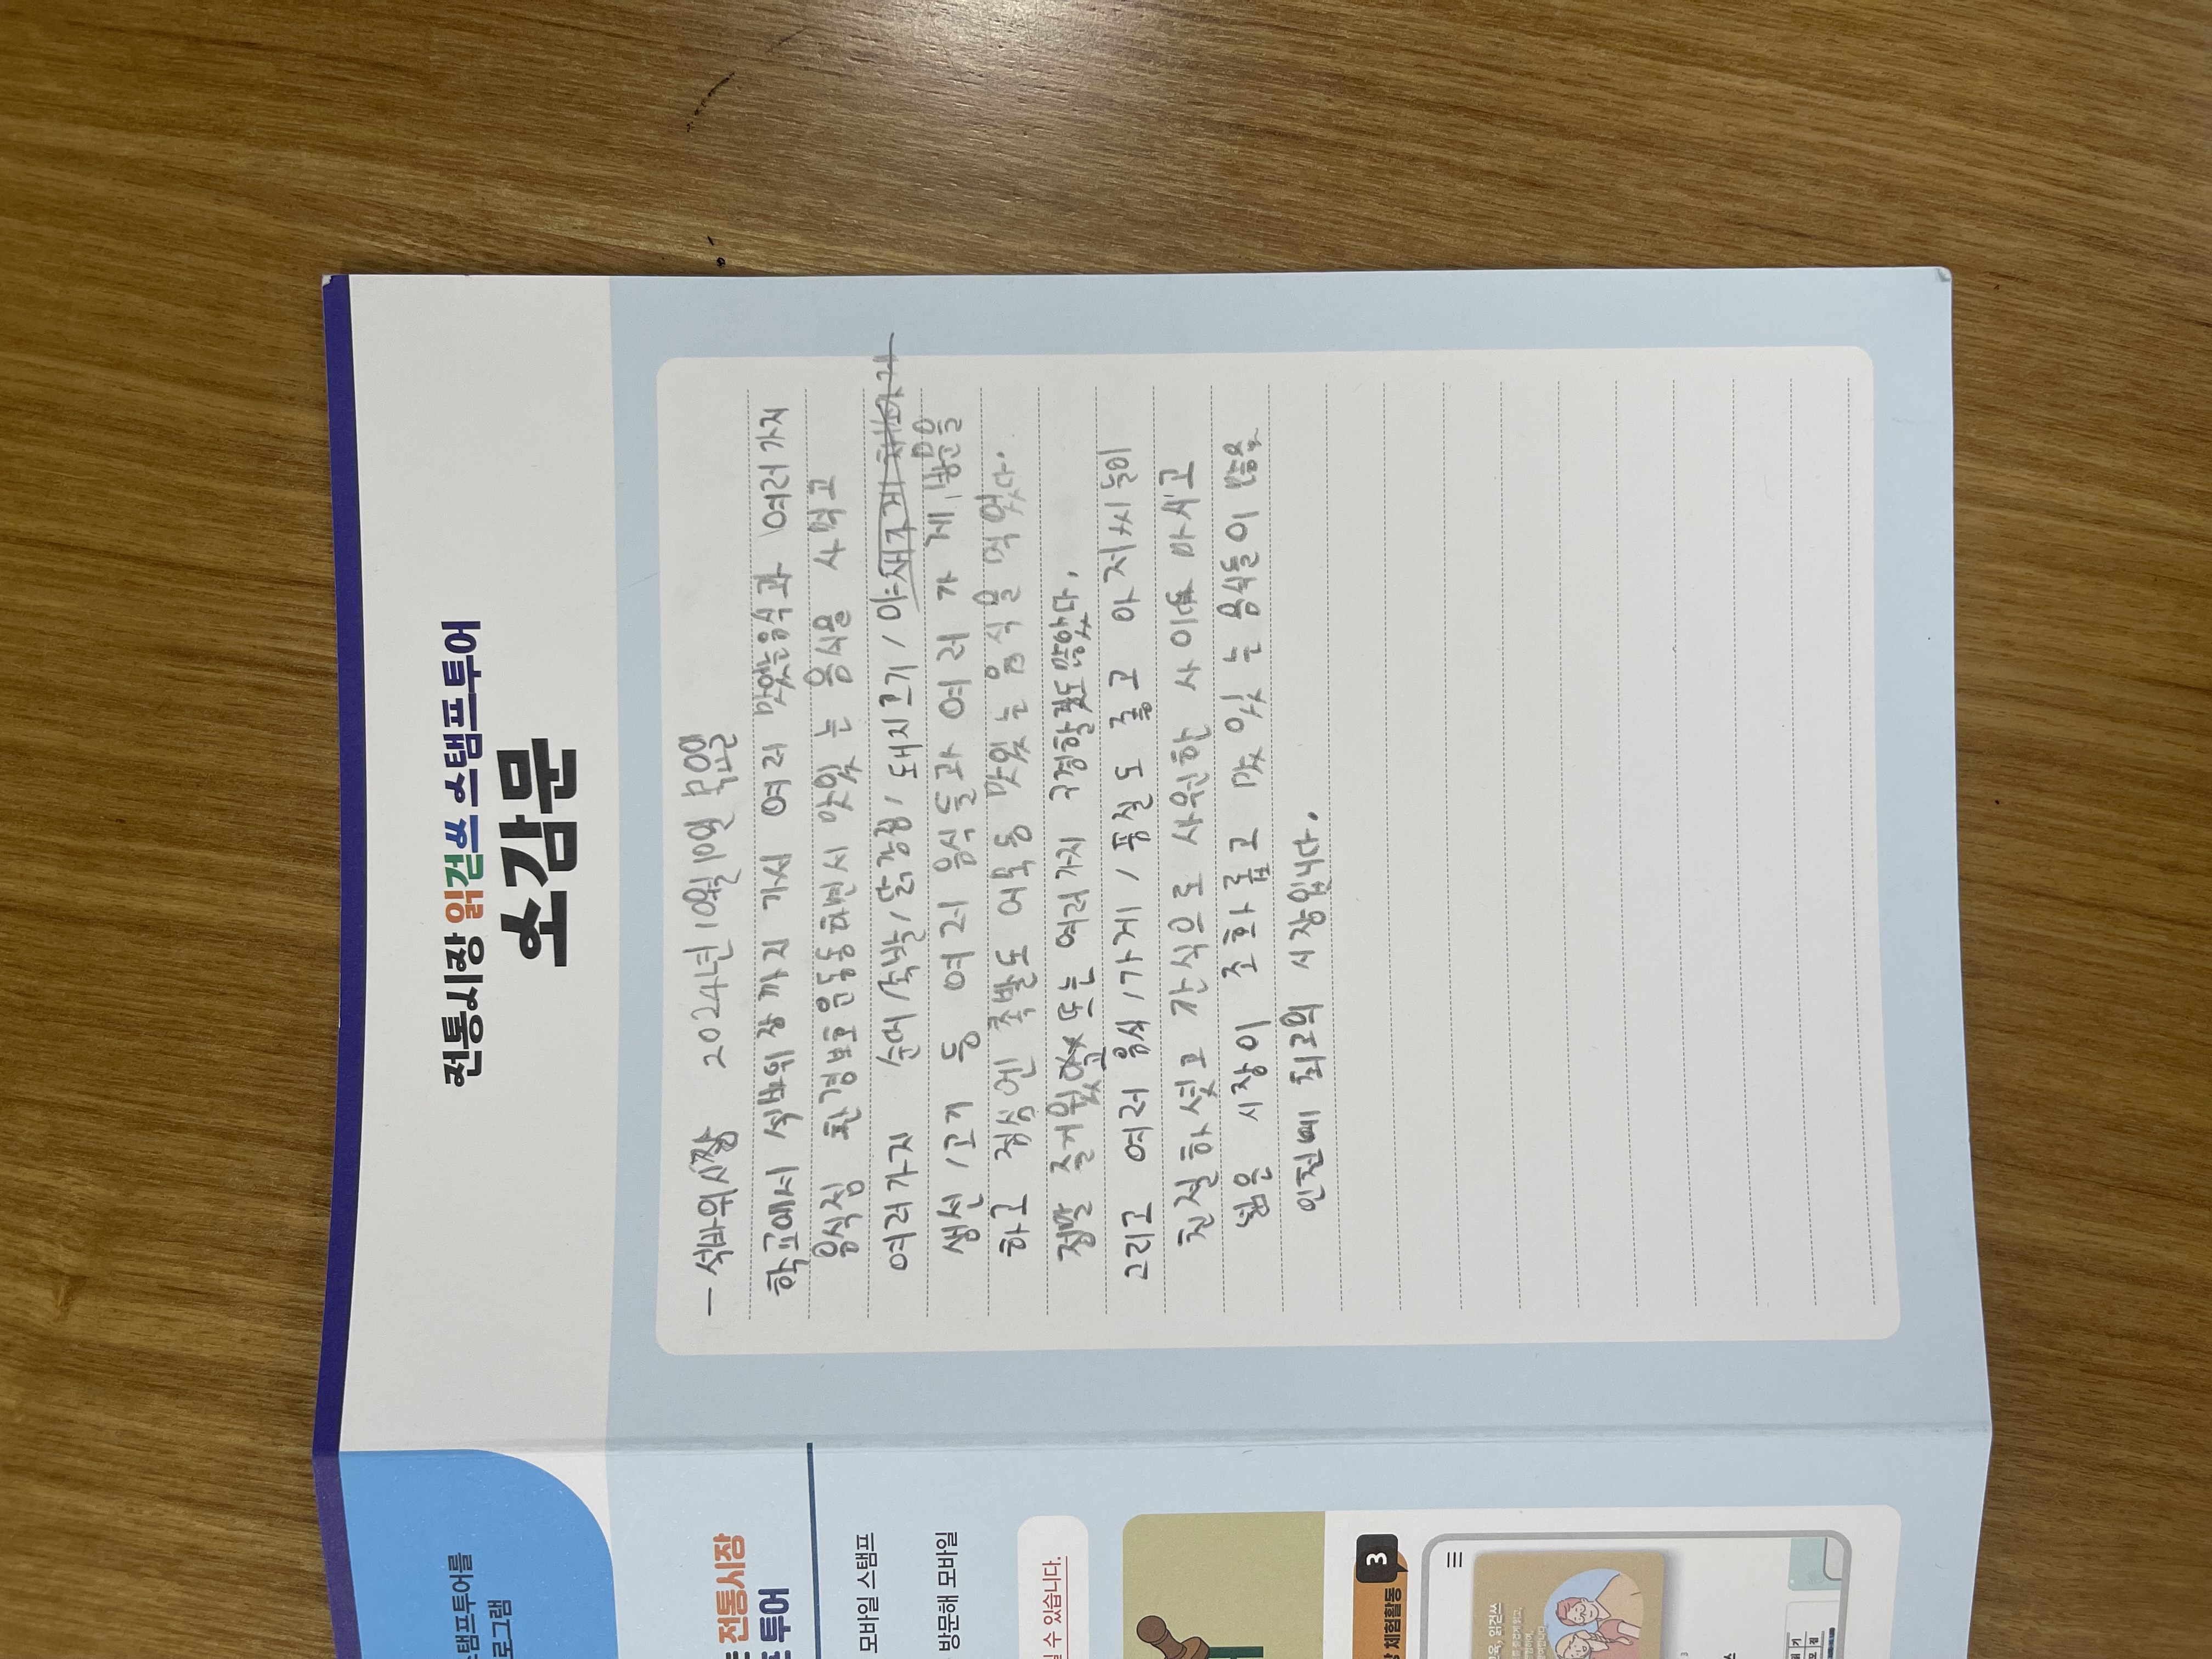 전통시장 읽걷쓰 스탬프 투어
소감문
- 석바위시장 2024년 10월 10일 목요일
학교에서 석바위 장까지 가서 여러 맛있는음식과 여러가지
음식점 환경보호 운동하면서 맛있는 음식을 사먹고
여러가지 순대/족발/닭강정/돼지고기/야채
생선/고기 등 여러 음식들과 여러 가게
하고 점심엔 족발도 어묵등 맛있는 음식을 먹었다.
정말 즐거웠고 또는 여러가지 구경할것도 많았다.
그리고 여러 음식/가게/품질도 좋고 아저씨들이
친절하셨고 간식으로 사원한 사이다 마시고
넓은 시장이 조화롭고 맛있는 음식들이 많은
인천에 최고의 시장입니다.
스탬프투어를
로그램
전통시장
투어
모바일 스탬프
방문해 모바일
될 수 있습니다.
체험활동
3